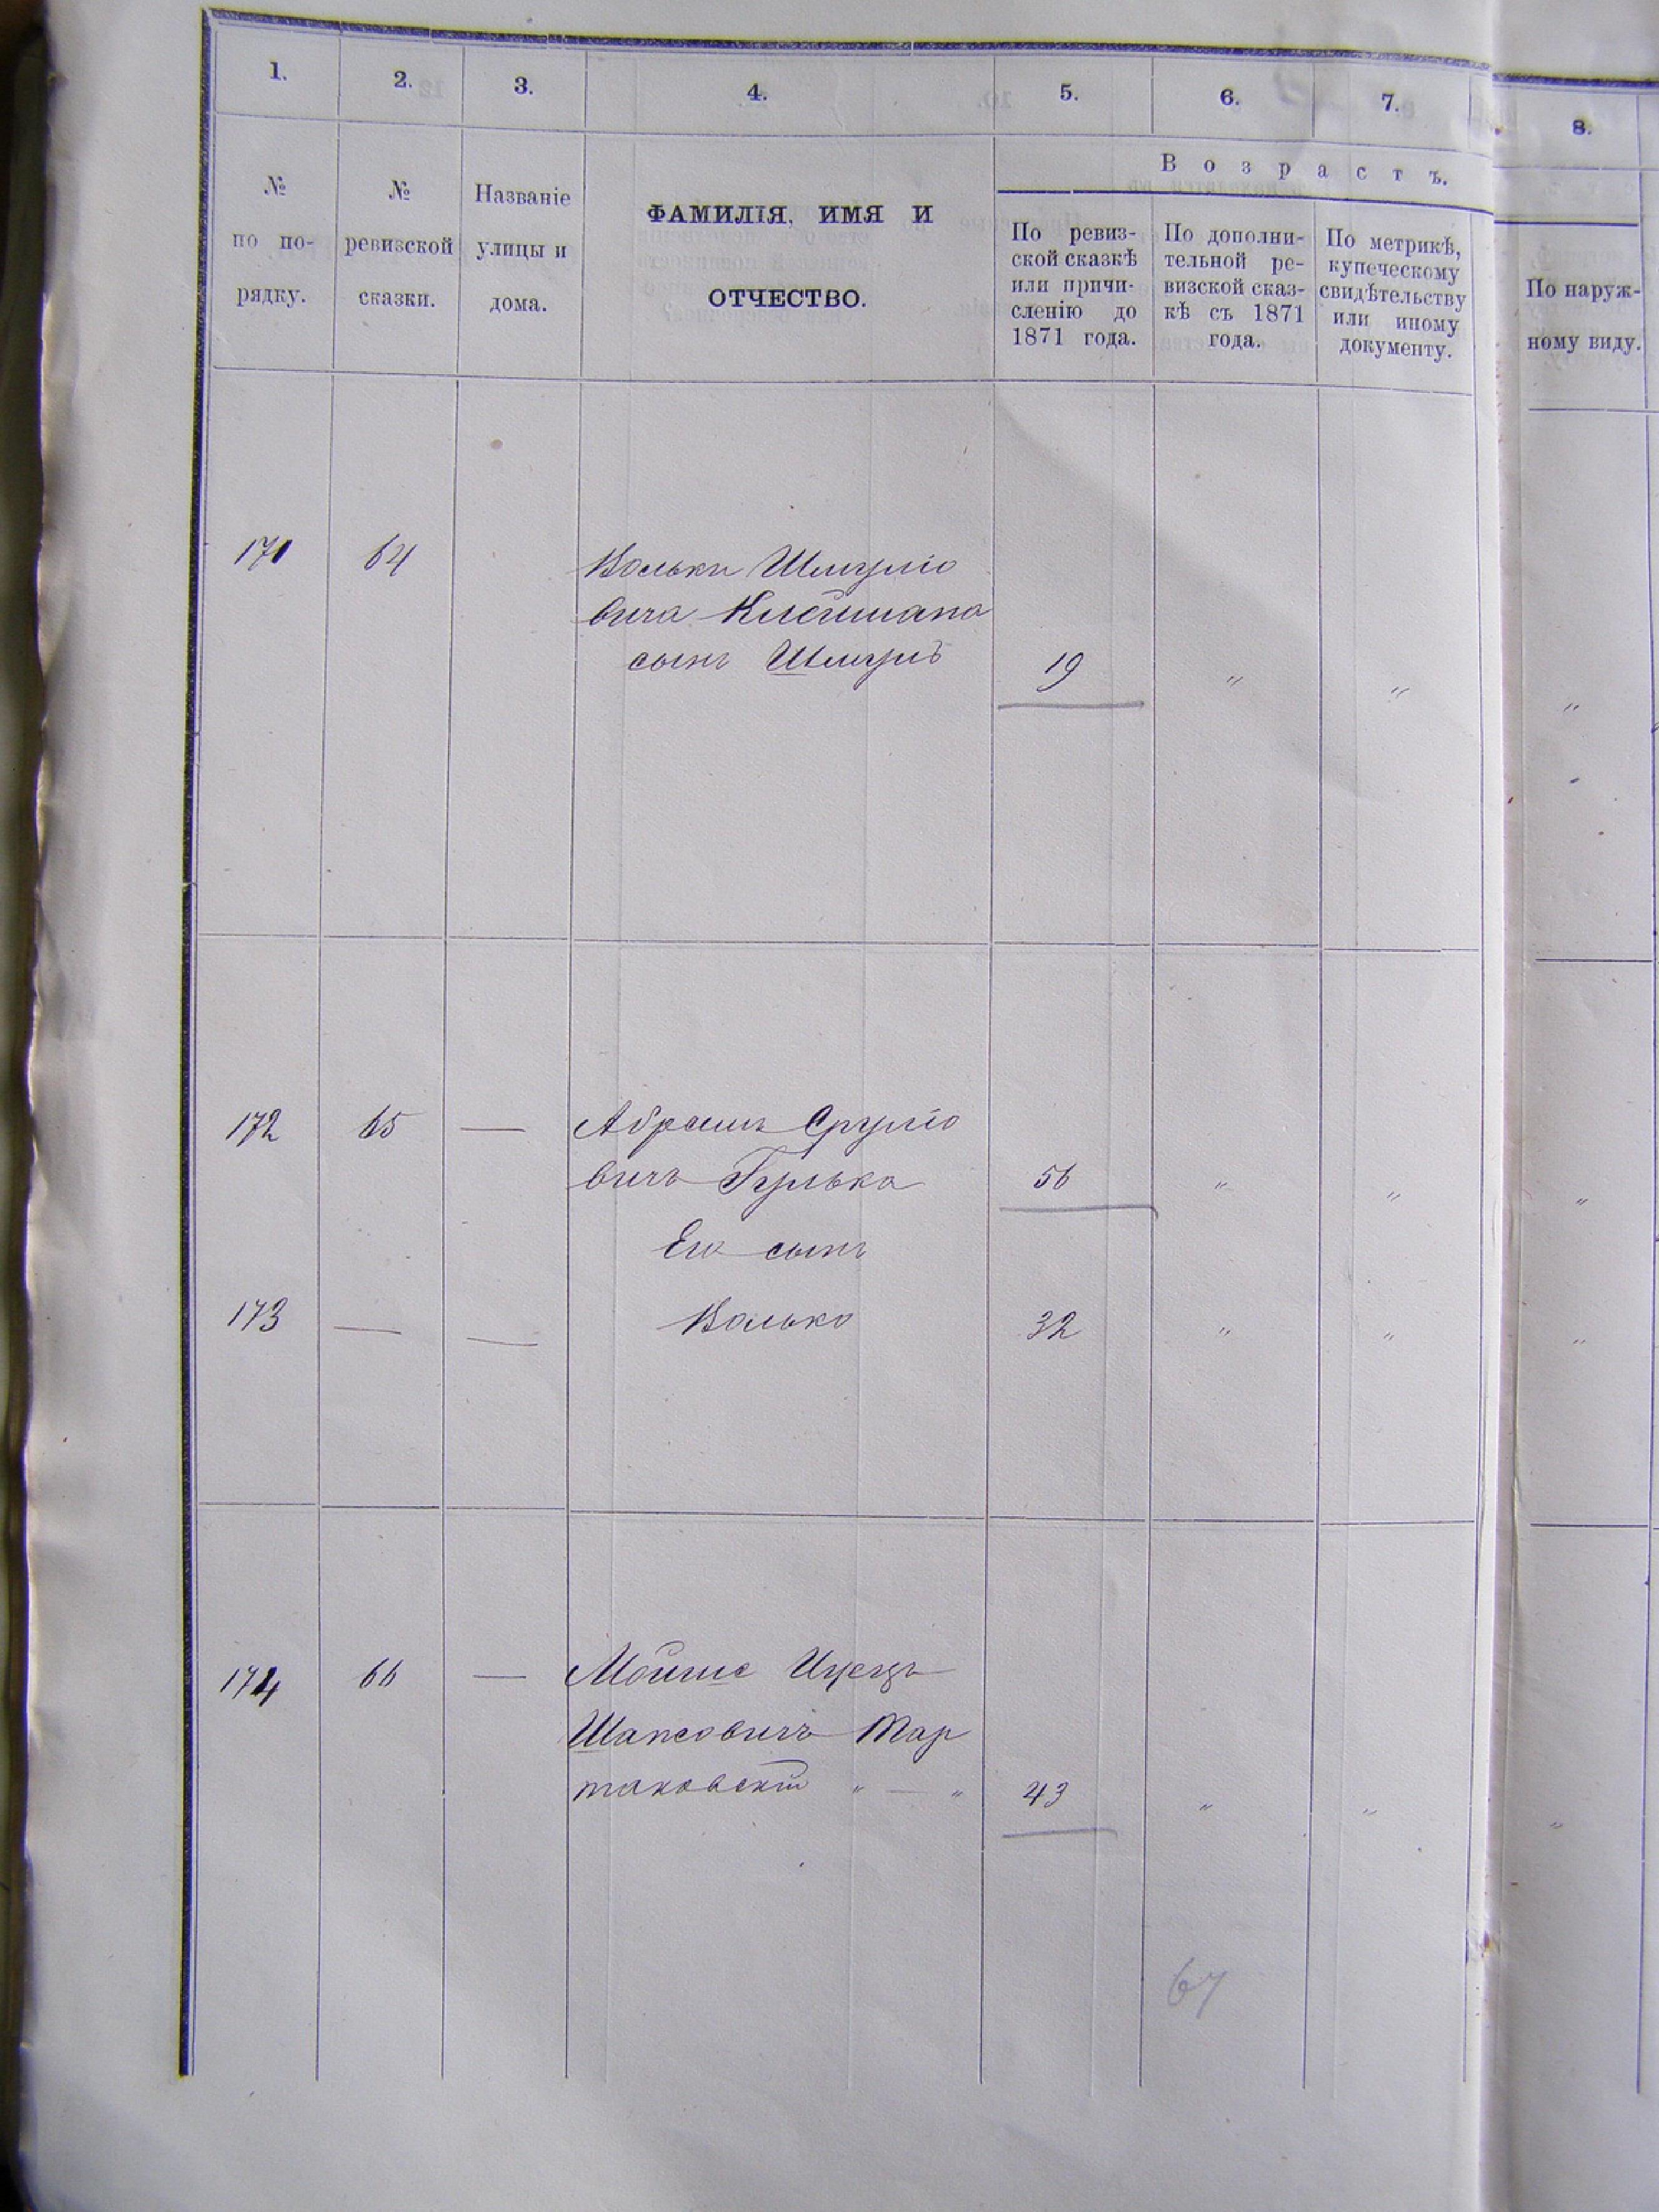 1. 2. 3. 4. 5. 6. 7. 8.
Возрастъ.
№ по по-рядку.
№ ревизской сказки.
Названіе улицы и дома.
ФАМИЛІЯ, ИМЯ И
ОТЧЕСТВО.
По ревиз-
ской сказкѣ
или причи-
сленію до
1871 года.
По дополни-
тельной ре-
визской сказ-
кѣ съ 1871
года.
По метрикѣ,
купеческому
свидѣтельству
или иному
документу.
По наруж-
ному виду.
171 64 Вольки Шмуліо
вича Клеймана
сынъ Шмуль 19 " " "
172 65 — Абрамъ Сруліо
вичъ Гулька 56 " " "
Его сынъ
173 — — Волько 32 " " "
174 66 — Мойше Ицекъ
Шапсовичъ Тар
таковскій " — " 43 " " "
67